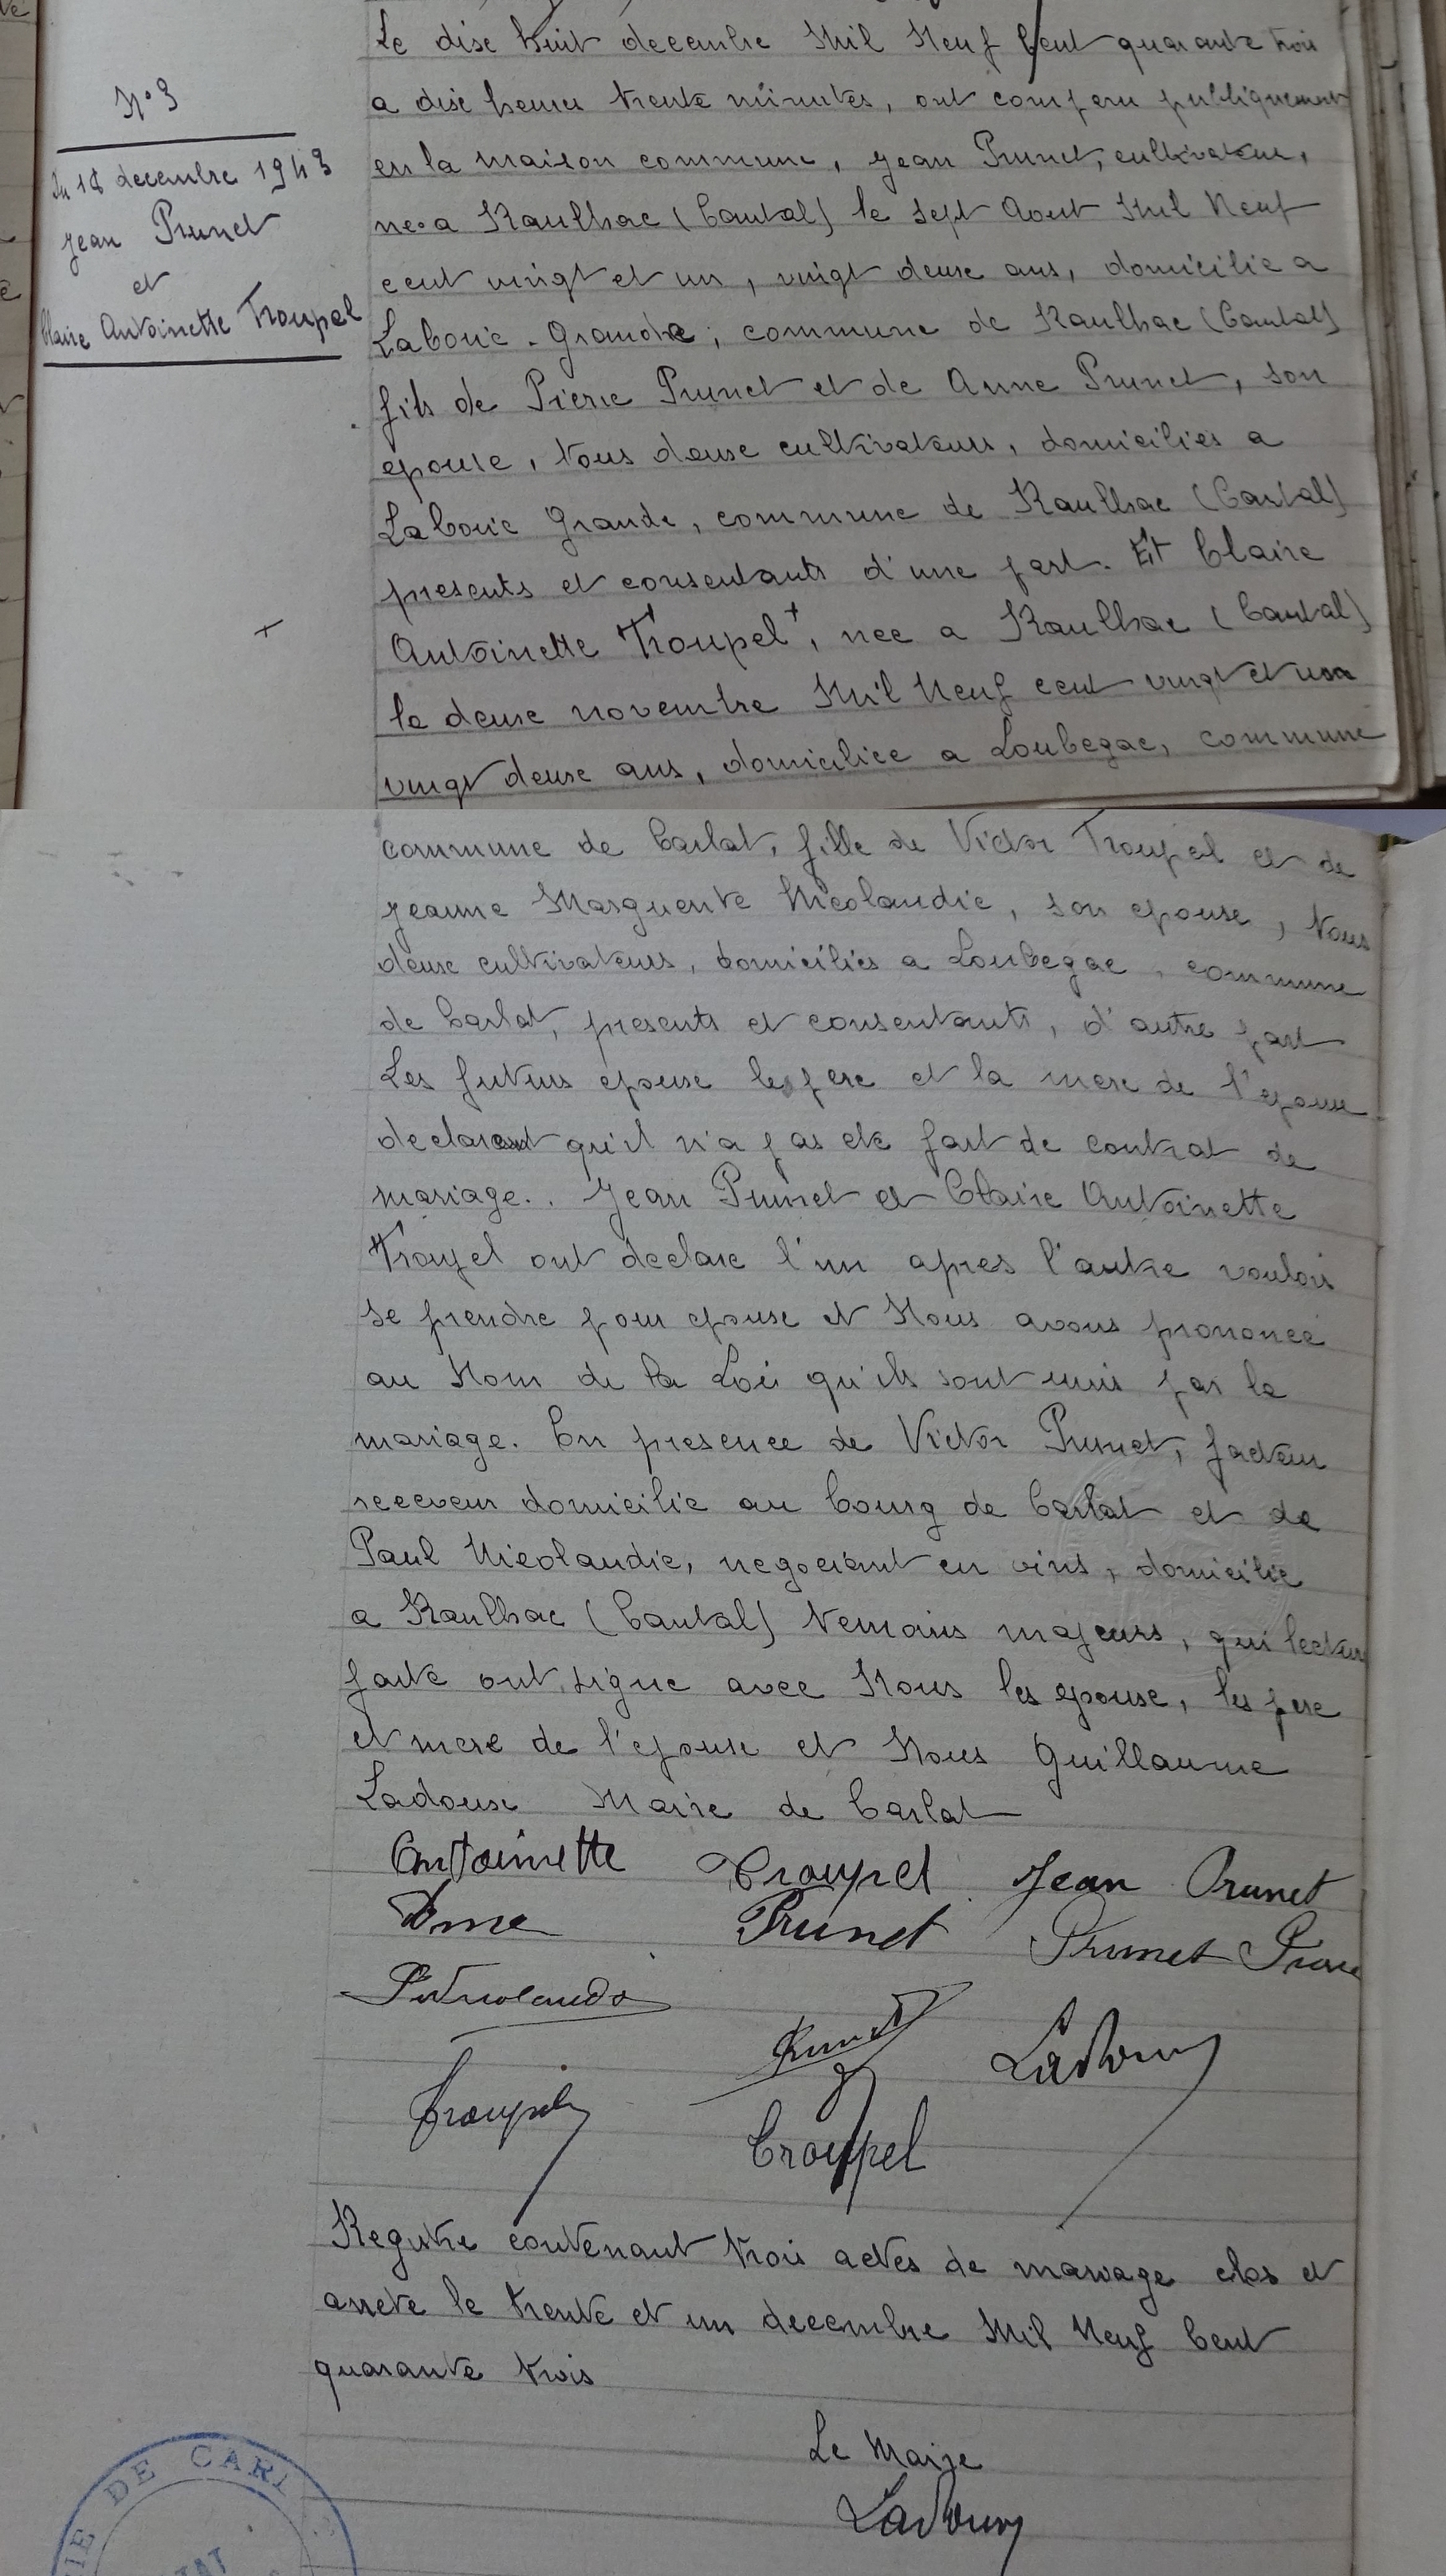 N°3
Du 18 decembre 1943
Jean Prunet
et
Claire Antoinette Troupel
Le dise huit decembre Mil Neuf Cent quarante trois
a dise heures trente minutes, ont comparu publiquement
en la maison commune, Jean Prunet, cultivateur,
ne a Raulhac (Cantal) le sept Aout Mil Neuf
cent vingt et un, vingt deuse ans, domicilie a
Laborie-Grande, commune de Raulhac (Cantal)
fils de Pierre Prunet et de Anne Prunet, son
epouse, tous deuse cultivateurs, domicilies a
Laborie Grande, commune de Raulhac (Cantal)
presents et consentants d'une part. Et Claire
Antoinette Troupel+, nee a Raulhac (Cantal)
+
le deuse novembre Mil Neuf cent vingt et un
vingt deuse ans, domiciliee a Loubegac, commune
commune de Carlat, fille de Victor Troupel et de
Jeanne Marguerite Nicolaudie, son epouse, tous
deuse cultivateurs, domicilies a Loubegac, commune
de Carlat, presents et consentants, d'autre part
Les futurs epouse les pere et la mere de l'epouse
declarent qu'il n'a pas ete fait de contrat de
mariage.. Jean Prunet et Claire Antoinette
Troupel ont declare l'un apres l'autre vouloir
se prendre pour epouse et Nous avons prononcé
au Nom de la Loi qu'ils sont unis par le
mariage. En presence de Victor Prunet, facteur
receveur domicilie au bourg de Carlat et de
Paul Nicolaudie, negociant en vins, domicilie
a Raulhac (Cantal) temoins majeurs, qui lecture
faite ont signe avec Nous les epouse, les pere
et mere de l'epouse et Nous Guillaume
Ladouse Maire de Carlat
Antoinette Troupel Jean Prunet
Anne Prunet Prunet Pierre
Prunet Ladouse
Troupel
Troupel
Registre contenant trois actes de mariage clos et
arrete le trente et un decembre Mil Neuf Cent
quarante trois
Le Maire
Ladouse
DE CARL